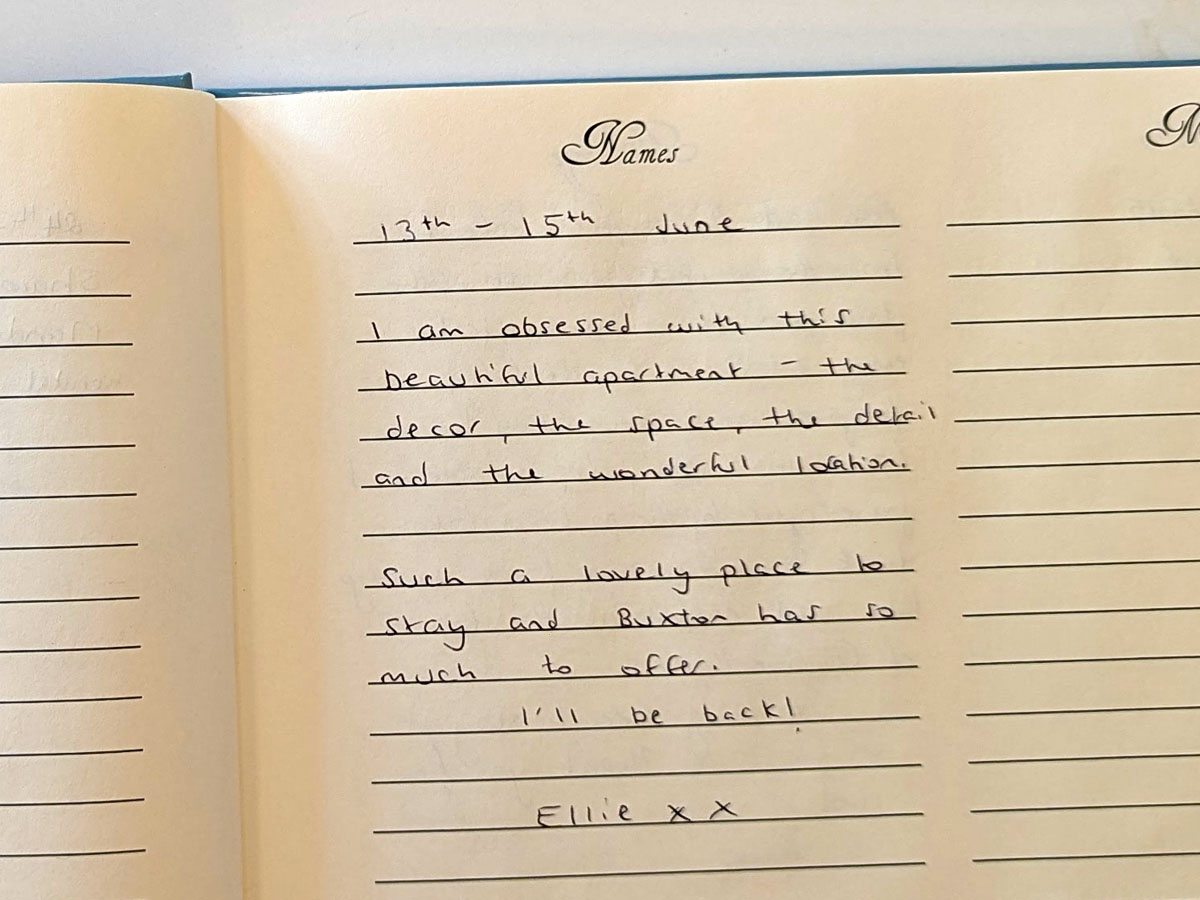 Names
13th - 15th June
I am obsessed with this
beautiful apartment - the
decor, the space, the detail
and the wonderful location.
Such a lovely place to
stay and Buxton has so
much to offer.
I'll be back!
Ellie x x